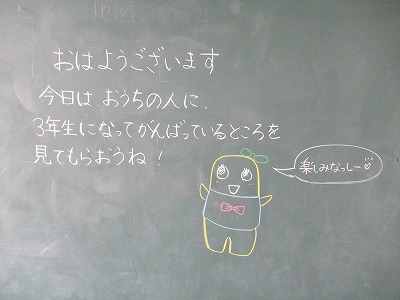 おはようございます
今日は、おうちの人に、
3年生になってがんばっているところを
見てもらおうね！
楽しみなっしー